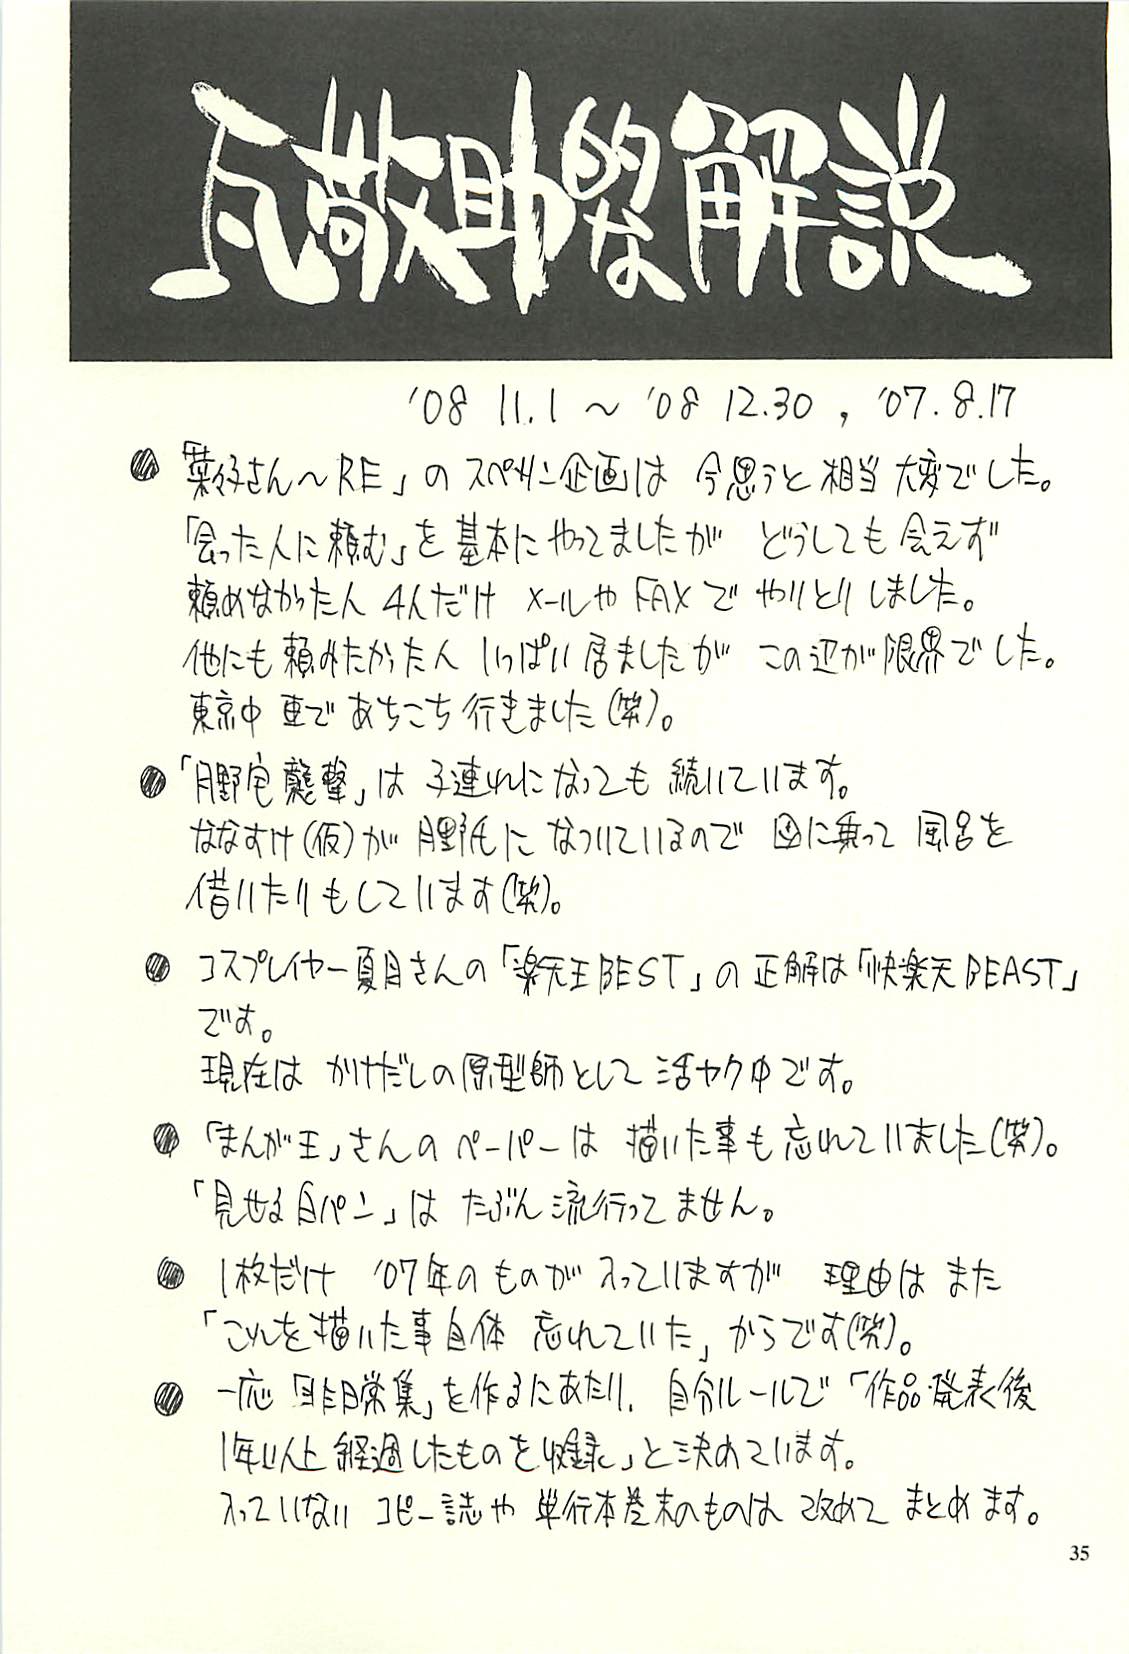 瓦敬助的な解説
'08 11.1 ～ '08 12.30 , '07.8.17
● 「菜々子さん～RE」の スペサン企画は 今思うと相当 大変でした。
「会った人に頼む」を基本にやってましたが どうしても会えず
頼めなかった人 4人だけ メールや FAXで やりとりしました。
他にも頼みたかった人 いっぱい居ましたが この辺が限界でした。
東京中 車で あちこち行きました(笑)。
● 「月野宅襲撃」は 子連れになっても 続いています。
ななすけ(仮)が 月野氏に なついているので 図に乗って 風呂を
借りたりもしています(笑)。
● コスプレイヤー夏月さんの「楽天王BEST」の 正解は「快楽天BEAST」
です。
現在は かけだしの原型師として 活ヤク中です。
● 「まんが王」さんの ペーパーは 描いた事も忘れていました(笑)。
「見せる白パン」は たぶん流行ってません。
● 1枚だけ '07年のものが 入っていますが 理由は また
「これを描いた事自体 忘れていた」からです(笑)。
● 一応「非日常集」を作るにあたり、自分ルールで「作品発表後
1年以上経過したものを収録」と決めています。
入っていない コピー誌や 単行本巻末のものは 改めて まとめます。
35